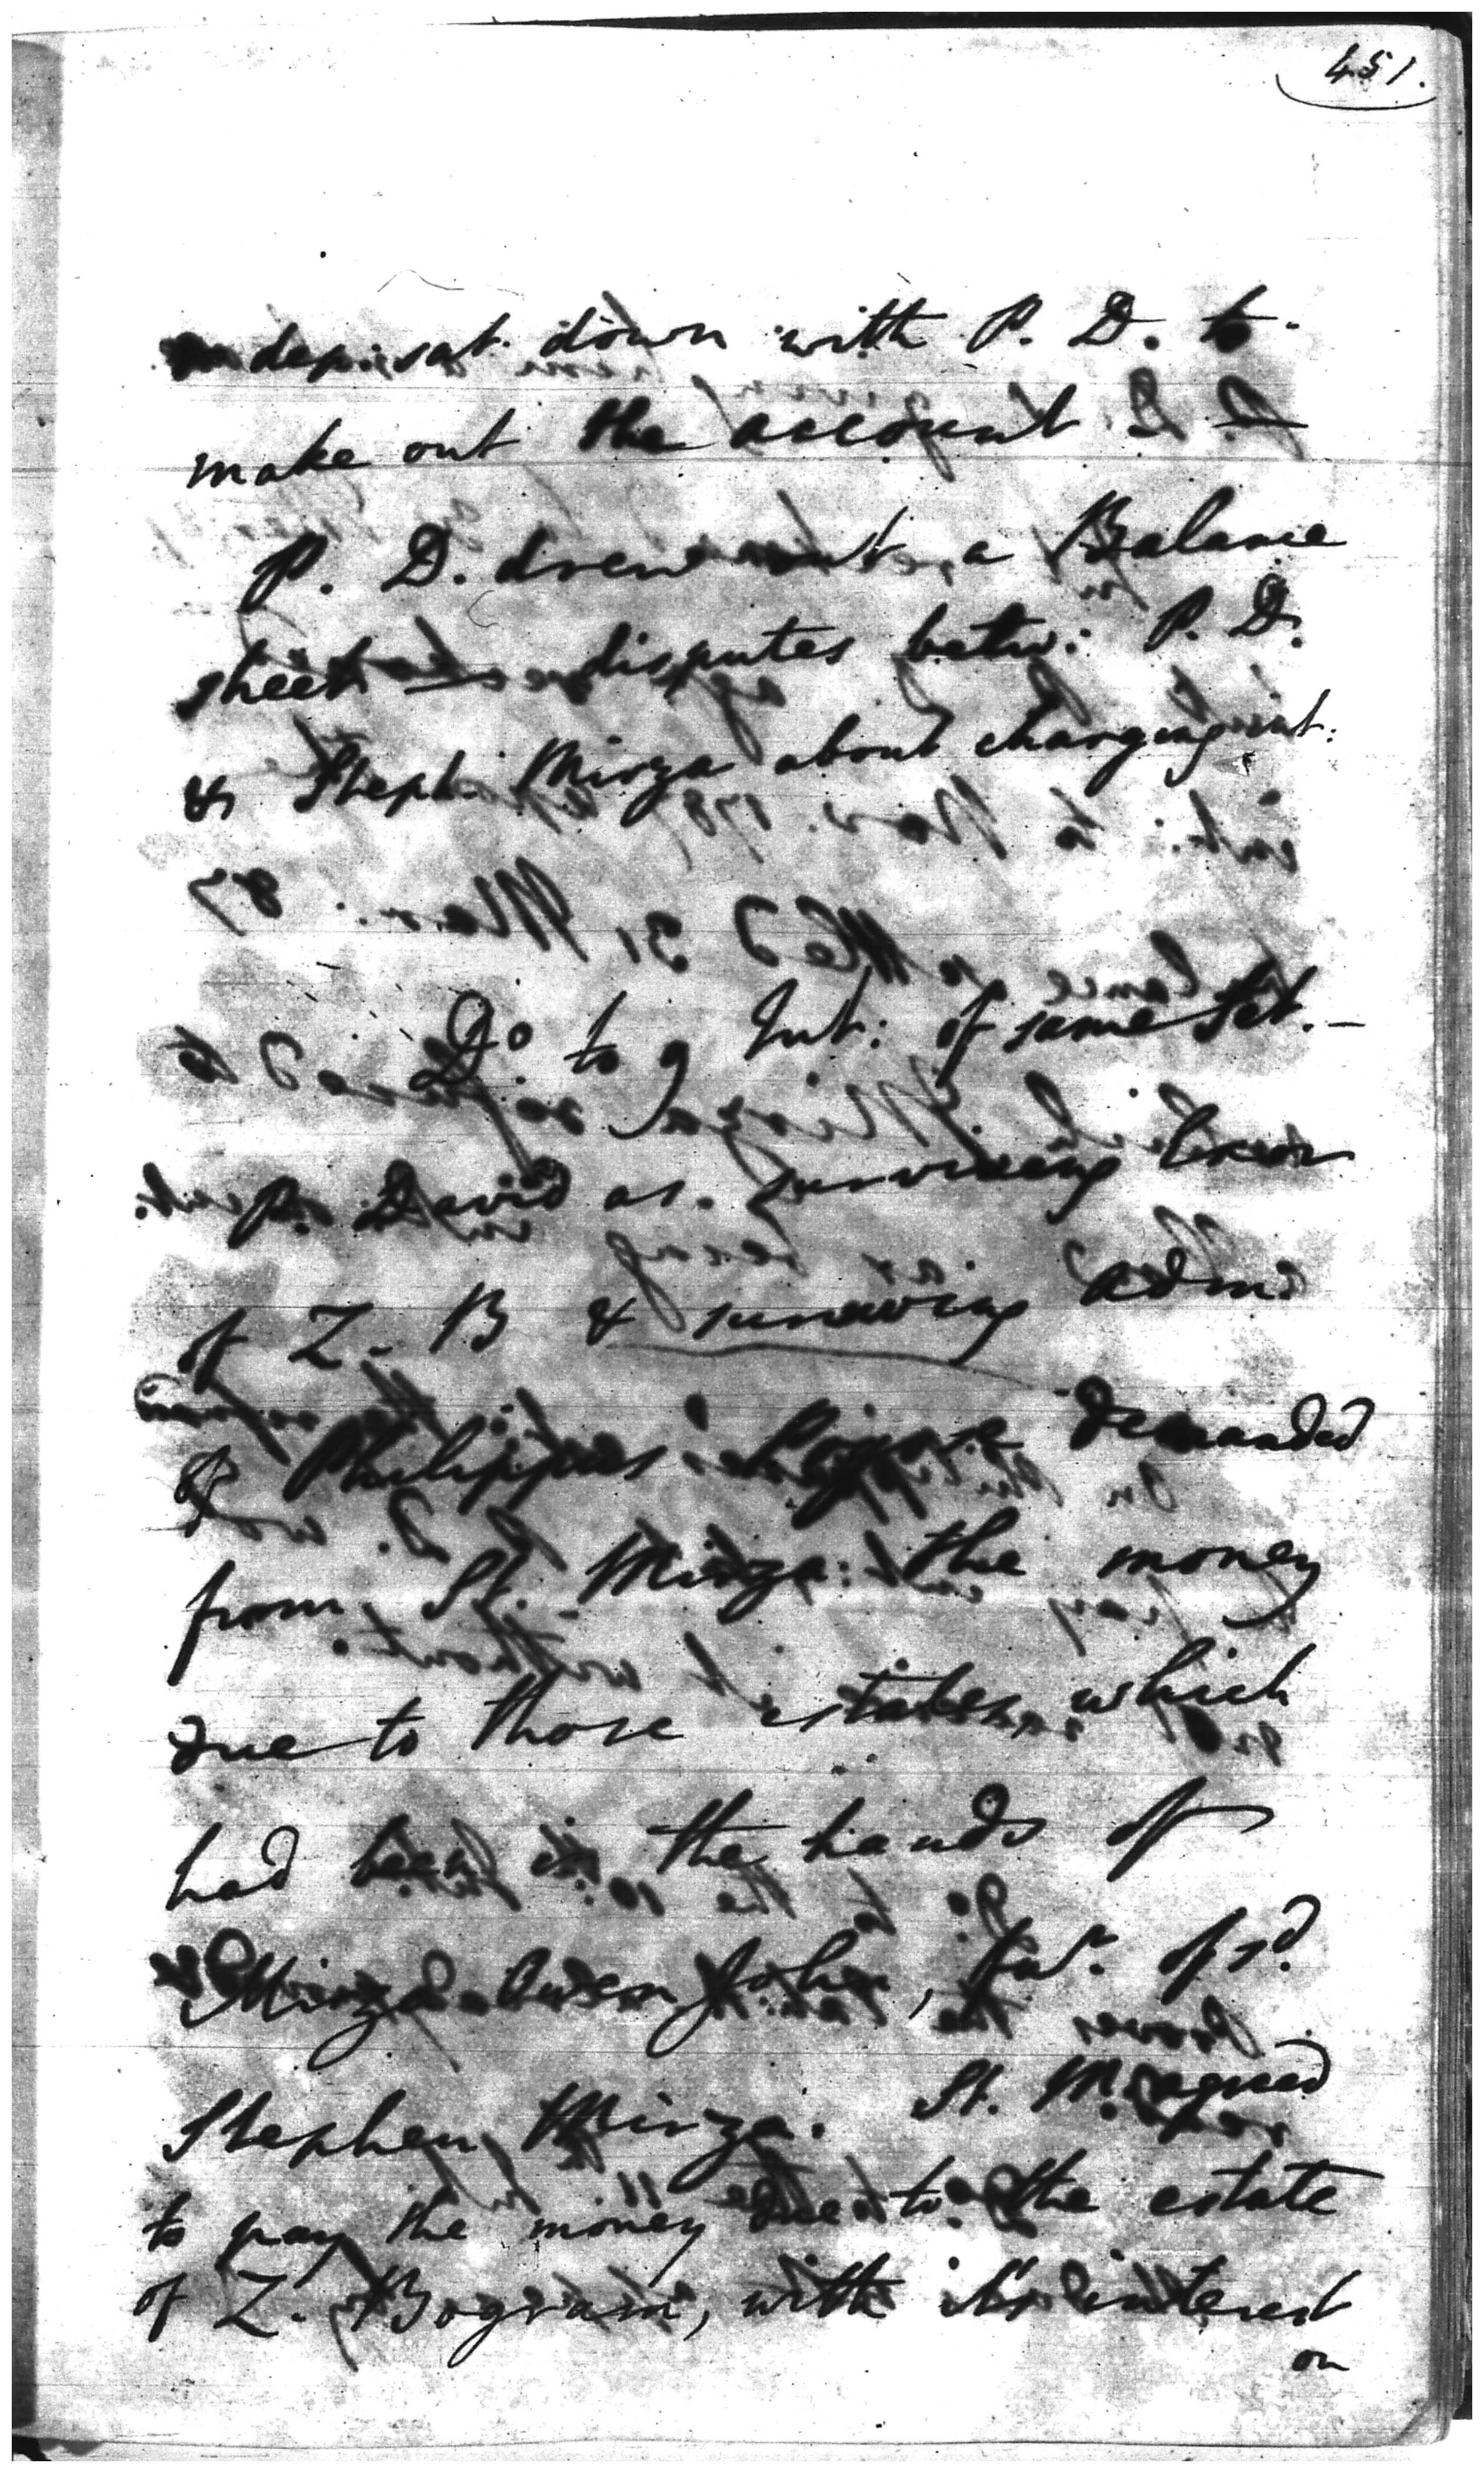 451.
dep: sat down with P. D. to
make out the account
P. D. drew out a Balance
sheet — disputes betw: P. D.
& Steph. Mirza about charging int:
Do. to 9 Int: of same Set. —
P. David as surviving Exor
of Z. B & surviving adm:
of Philippus demanded
from St. Mirza the money
due to those estates which
had been in the hands of
Mirza John, far. of sd.
Stephen Mirza. St. M. agreed
to pay the money due to the estate
of Z. Bogram, with interest
on